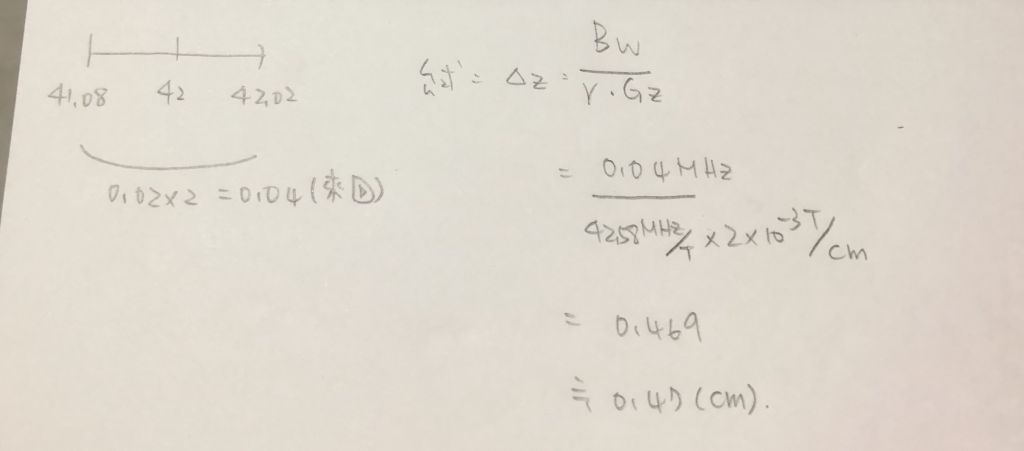 41.08 42 42.02
0.02x2 = 0.04 (來回)
Δz = Bw / γ・Gz
= 0.04MHz / 42.58MHz/T x 2x10⁻³T/cm
= 0.469
≒ 0.47 (cm).